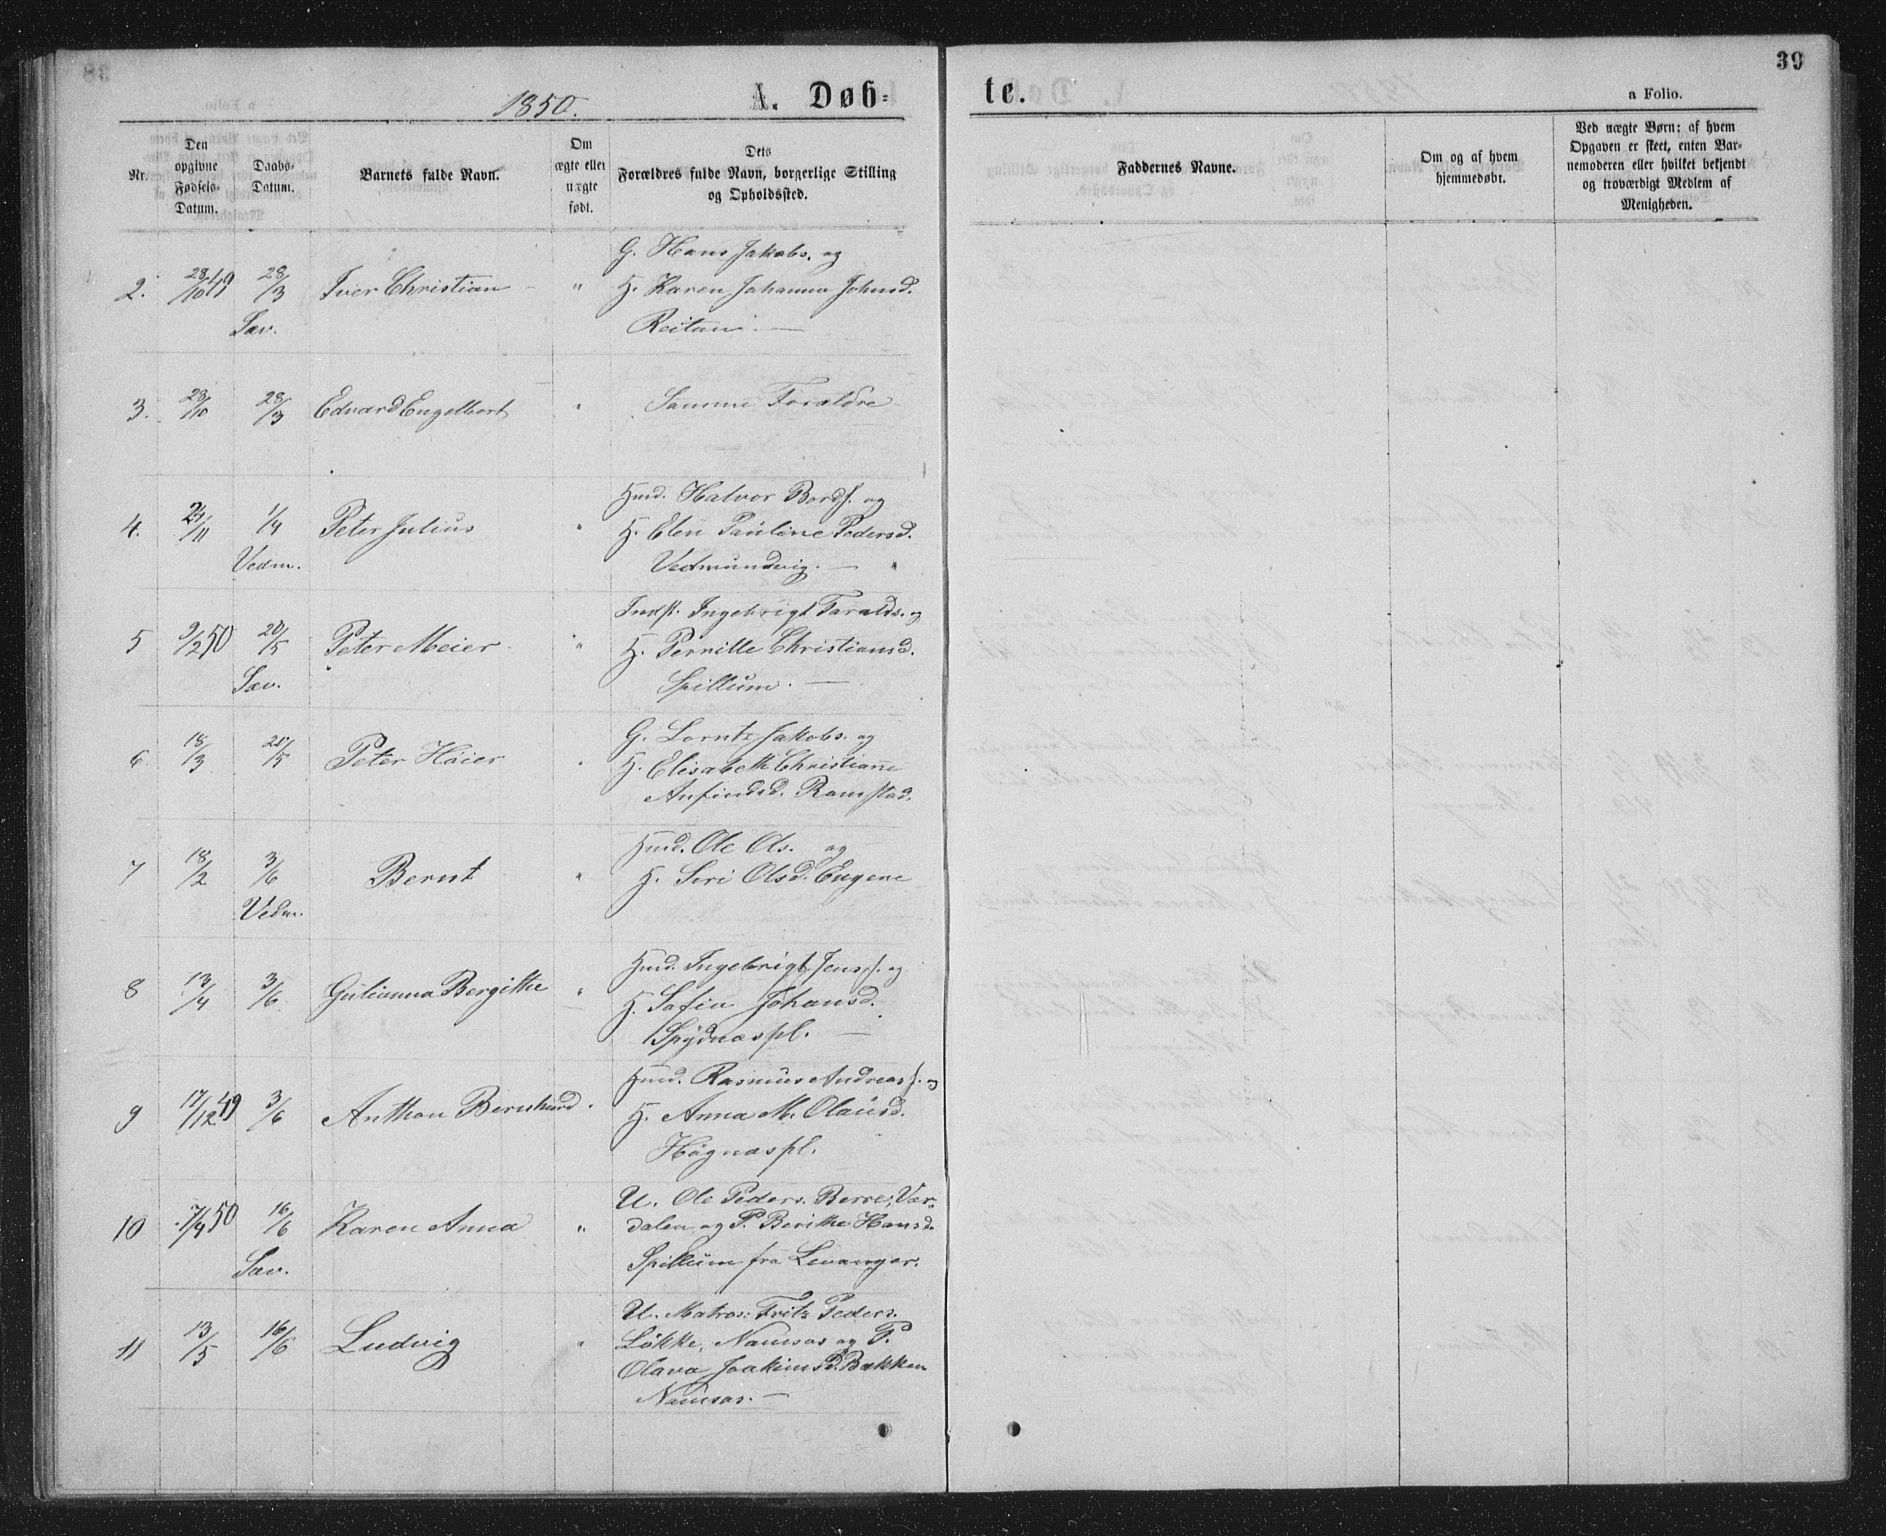 39
1850.
A. Døb-
te.
a Folio.
Nr.
Den
opgivne
Fødsels-
Datum.
Daabs-
Datum.
Barnets fulde Navn.
Om
ægte eller
uægte
født.
Dets
Forældres fulde Navn, borgerlige Stilling
og Opholdssted.
Faddernes Navne.
Om og af hvem
hjemmedøbt.
Ved uægte Børn: af hvem
Opgaven er skeet, enten Bar-
nemoderen eller hvilket bekjendt
og troværdigt Medlem af
Menigheden.
G. Hans Jakobs. og
2. 28/10 49 28/3 Iver Christian " H. Karen Johanna Johnsd.
Sæv. Reitan. —
3. 28/10 28/3 Edvard Engelbert " Samme Forældre
Hmd. Halvor Bards. og
4. /11 1/4 Peter Julius " H. Elen Pauline Pedersd.
Vedm. Vedmundvig. — "
Indst. Ingebrigt Taralds. og
5 9/2 50 20/5 Peter Meier " H. Pernille Christiansd.
Sæv. Spillum. —
G. Lornts Jakobs. og
6 18/3 /5 Peter Høier " H. Elisabeth Christiane
Anfindsd. Ramstad.
Hmd. Ole Ols. og
7 18/2 3/6 Bernt " H. Seri Olsd. Engene
Vedm.
Hmd. Ingebrigt Jens. og
8 13/4 3/6 Gulianna Bergithe " H. Safia Johansd.
Spydnæspl. —
Hmd. Rasmus Andreass. og
9 17/12 49 3/6 Anthon Bernhard " H. Anna M. Olausd.
Høgnæspl.
U. Ole Peders. Berre, Vær-
10 7/4 50 16/6 Karen Anna " dalen og P. Berithe Hansd.
Sæv. Spillum fra Levanger.
U. Matros: Fritz Peders.
11 13/5 16/6 Ludvig " Løkke, Namsos og P.
Olava Joakimsd. Bakken
Namsos. —